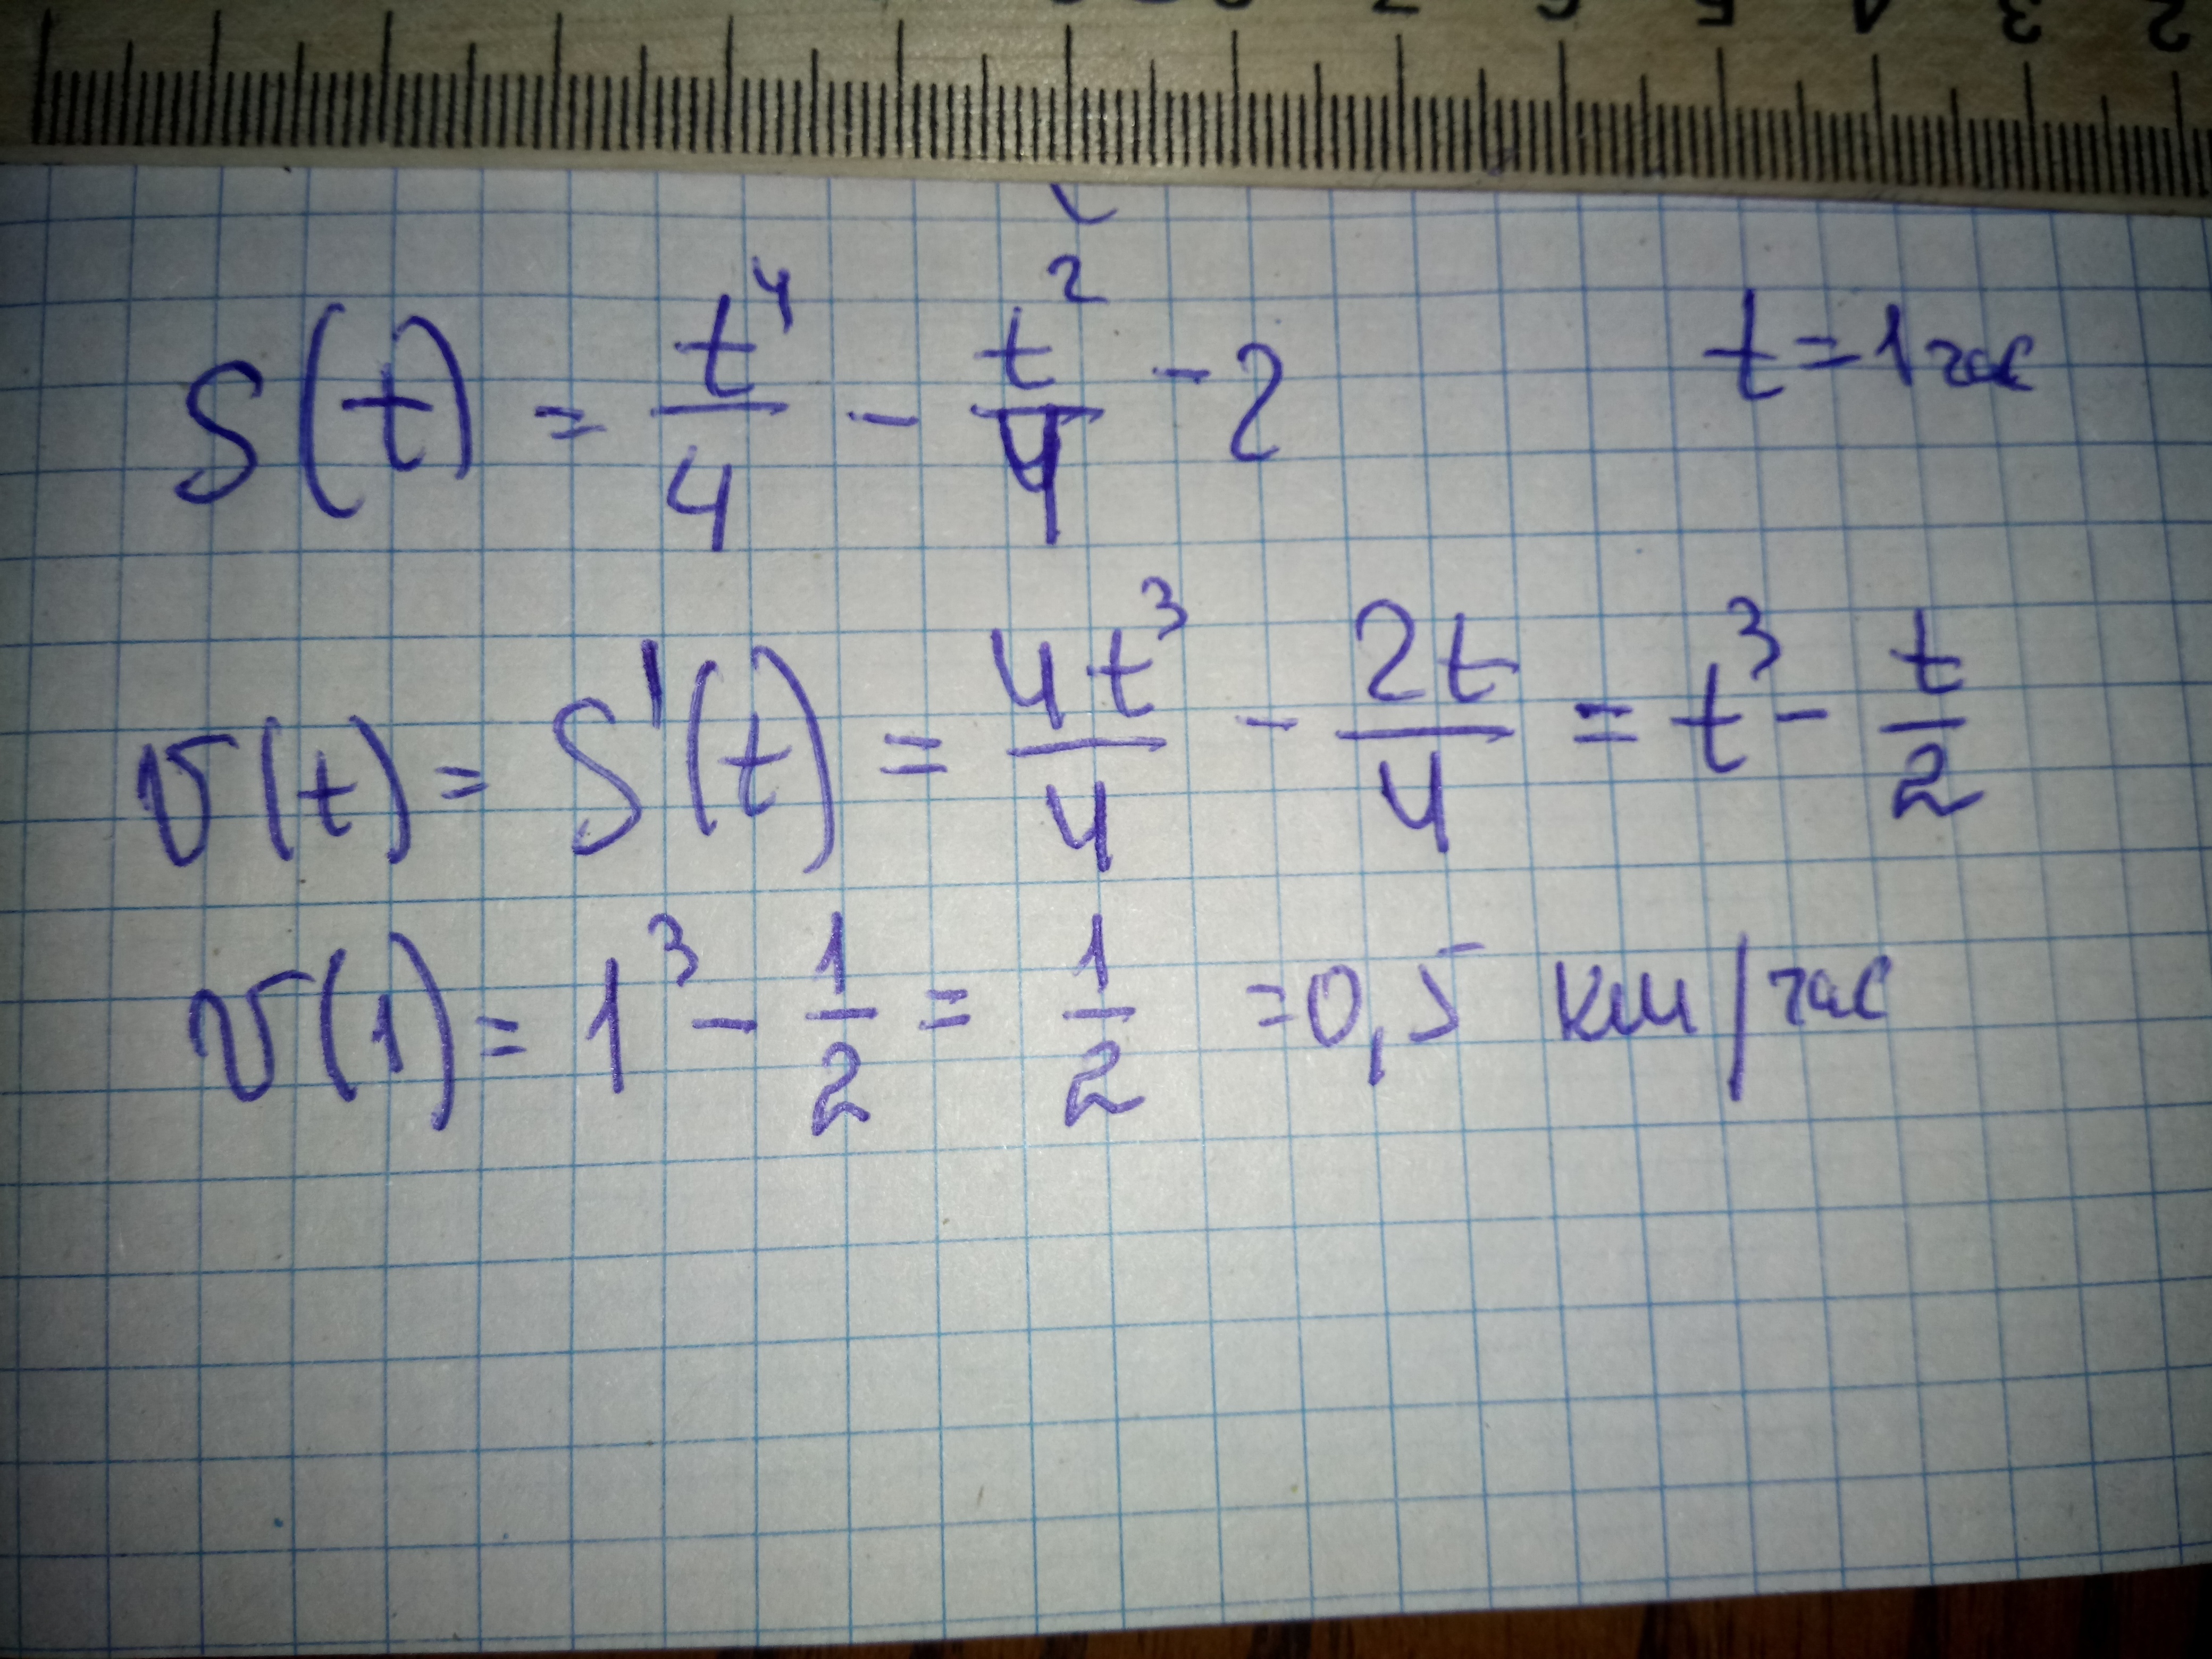 7 6 5 4 3 2
S(t) = t⁴/4 - t²/4 - 2 t = 1 час
v(t) = S'(t) = 4t³/4 - 2t/4 = t³ - t/2
v(1) = 1³ - 1/2 = 1/2 = 0,5 км/час